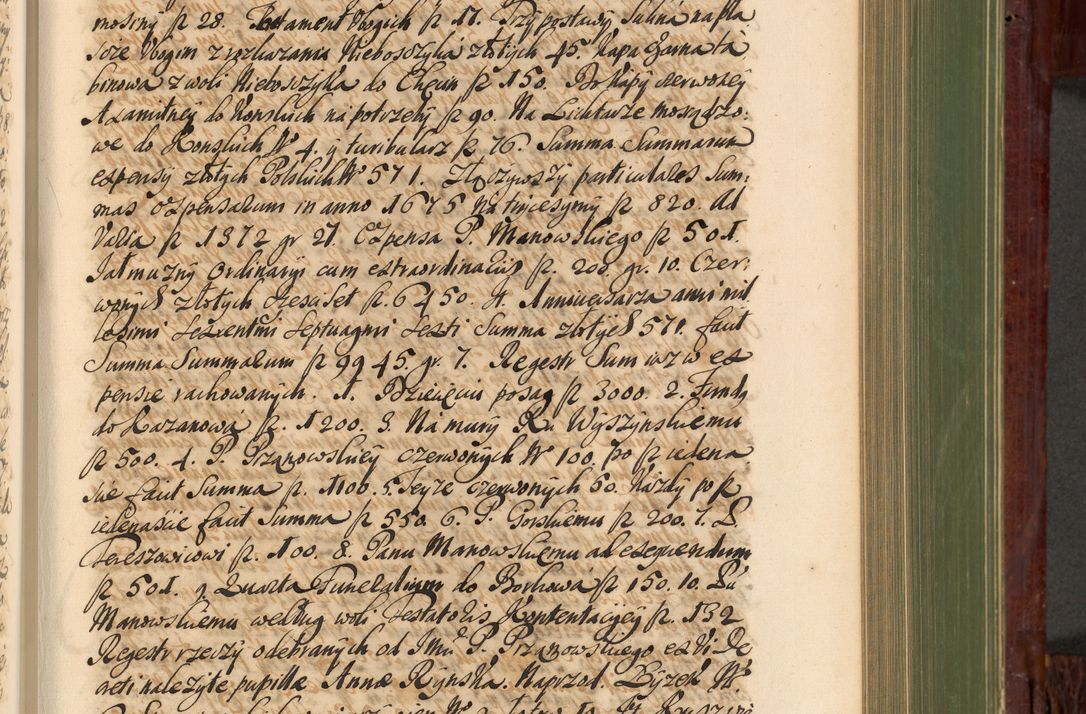 mosiny fl 28. Testament Ubogich fl 17. Przy postawy Sukna na pła
szcze Ubogim z rozkazania Nieboszczyka złotych 45. Kapa Czarna ta
binowa z woli Nieboszczyka do Chęcin fl 150. Do Kapy czerwoney
Axamitney do Konskich na potrzeby fl 90. Na Lichtarze mosiądzo:
we do Konskich No 4. y turibularz fl 76. Summa Summarum
expensy złotych Polskich No 571. Złożywszy particulares Sum:
mas expensarum in anno 1675 na trycesymy fl 820. Ad
Varia fl 1372 gr 21. Expensa P. Manowskiego fl 501.
Jałmużny Ordinaryi cum extraordinaryis fl. 200. gr. 10. Czer:
wonych złotych fl. 6450. It. Anniversarza anni mil
lesimi sexcentmi Septuagmi sexti Summa złotych 571. facit
Summa Summarum fl 9945. gr. 7. Regestr Sum w ex
pensie rachowanych. 1. Dziecięciu posag fl 3000. 2. Fundą
do Kazanowa fl. 1200. 3. Na mury Xu Wyszynskiemu
fl 500. 4. P. Przanowskiey czerwonych No 100, po fl iedena
scie facit Summa fl. 1100. 5. Teyże czerwonych 50. każdy po fl
iedenascie facit Summa fl 550. 6. P. Gorskiemu fl 200. 7. X.
Tereszowicowi fl. 100. 8. Panu Manowskiemu ad exequendum
fl 501. 9 Quarta Funeralium do Borkowa fl 150. 10. Pu
Manowskiemu według woli Testatoris Kontentacyey fl. 132
Regestr rzeczy odebranych od JMci P. Przanowskiego ex vi De
creti należyte pupillæ Annæ Rynska. Naprzod.